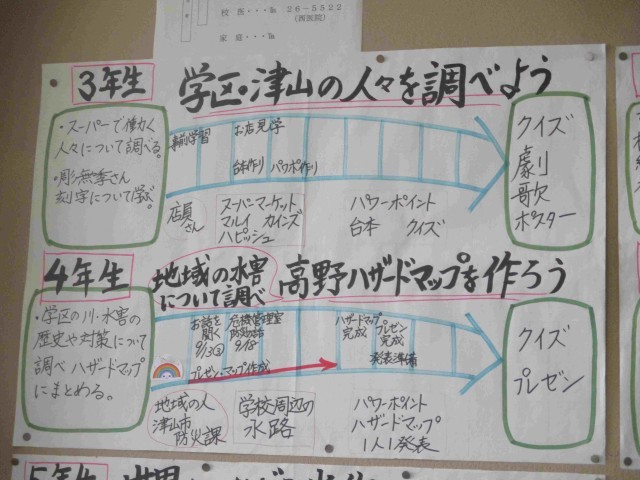 校医・・・℡ 26-5522
(西医院)
家庭・・・℡
3年生
学区・津山の人々を調べよう
・スーパーで働く
人々について調べる。
刻字について学ぶ。
事前学習
お店見学
台本作り パワポ作り
店員
さん
スーパーマーケット
マルイ カインズ
ハピッシュ
パワーポイント
台本 クイズ
クイズ
劇
歌
ポスター
4年生
地域の水害
について調べ
高野ハザードマップを作ろう
・学区の川・水害の
歴史や対策について
調べ ハザードマップ
にまとめる。
お話を
聞く
危機管理室
9/18
プレゼン・マップ作成
ハザードマップ
完成
プレゼン
完成
発表準備
地域の人
津山市
防災課
学校周辺の
水路
パワーポイント
ハザードマップ
1人1発表
クイズ
プレゼン
5年生